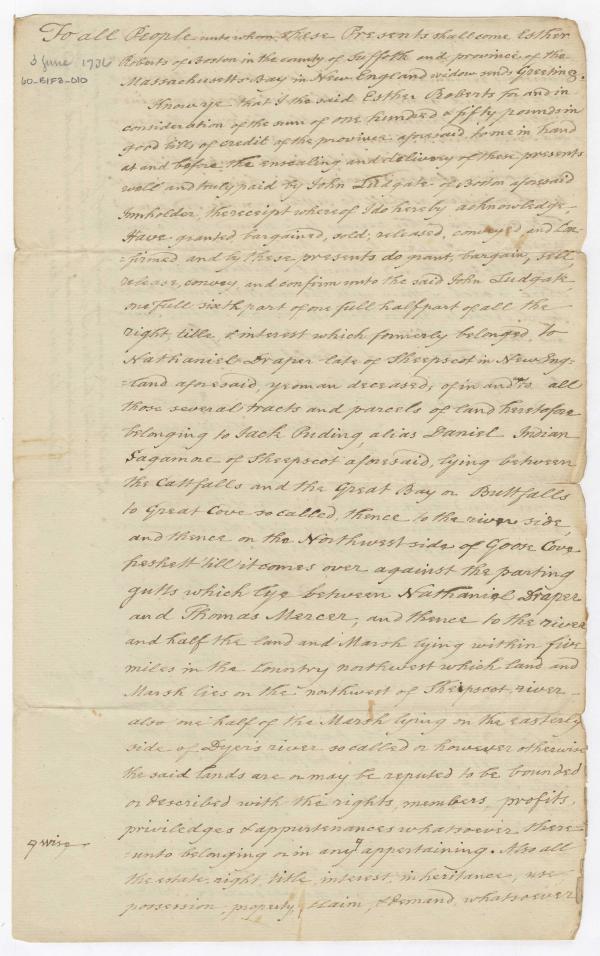 To all People unto whom these Presents shall come Esther
3 June 1736
60-B1F3-010
Roberts of Boston in the county of Suffolk and province of the
Massachusetts Bay in New England widow sends Greeting.
Know ye that I the said Esther Roberts for and in
consideration of the sum of one hundred & fifty pounds in
good bills of credit of the province aforesaid to me in hand
at and before the ensealing and delivery of these presents
well and truly paid by John Ludgate of Boston aforesaid
Innholder, the receipt whereof I do hereby acknowledge,
Have granted, bargained, sold, released, conveyed and Con=
=firmed and by these presents do grant, bargain, sell,
release, convey, and confirm unto the said John Ludgate
one full sixth part of one full half part of all the
right, title, & interest which formerly belonged to
Nathaniel Draper late of Sheepscot in New Eng=
=land aforesaid, yeoman deceased, of in and to all
those several tracts and parcels of land heretofore
belonging to Jack Puding, alias Daniel Indian
Sagamore of Sheepscot aforesaid, lying between
the Cattfalls and the Great Bay or Buttfalls
to Great Cove so called, thence to the river side,
and thence on the Northwest side of Goose Cove
freshett 'till it comes over against the parting
gutts which lye between Nathaniel Draper
and Thomas Mercer, and thence to the river
and half the land and Marsh lying within five
miles in the Country northwest which land and
Marsh lies on the northwest of Sheepscot river
also one half of the Marsh lying on the easterly
side of Dyer's river so called or however otherwise
the said lands are or may be reputed to be bounded
or described with the rights, members, profits,
priviledges & appurtenances whatsoever there=
q wise
=unto belonging or in any q appertaining. Also all
the estate, right, title, interest, inheritance, use
possession, property, claim, & demand whatsoever